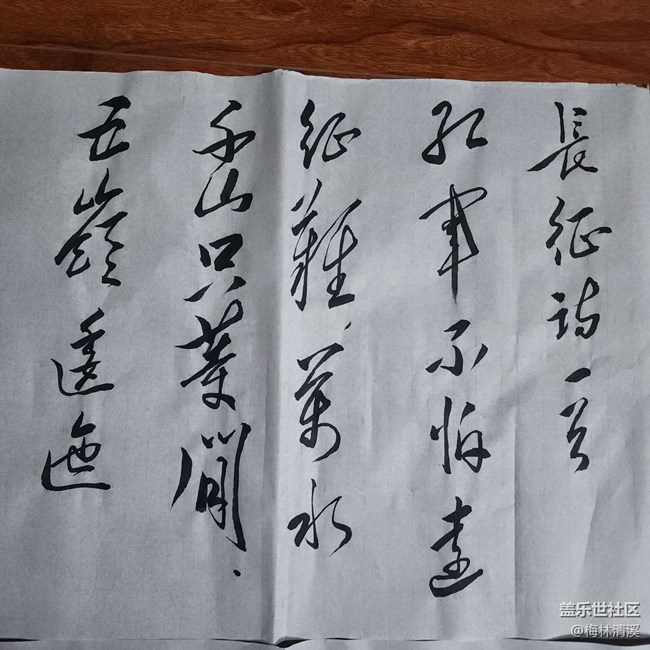 長征詩一首
红軍不怕遠
征難萬水
千山只等閒
五嶺逶迤
盖乐世社区
@梅林清溪